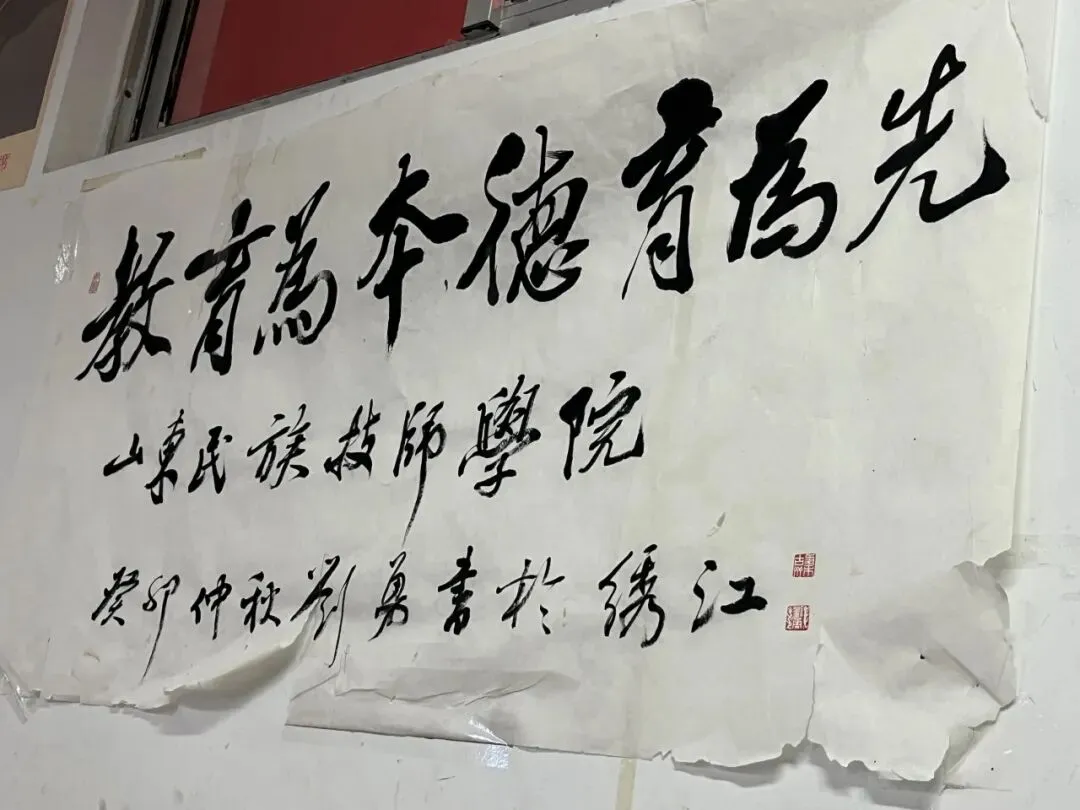 教育為本德育為先
山東民族技師學院
癸卯仲秋劉勇書於綉江